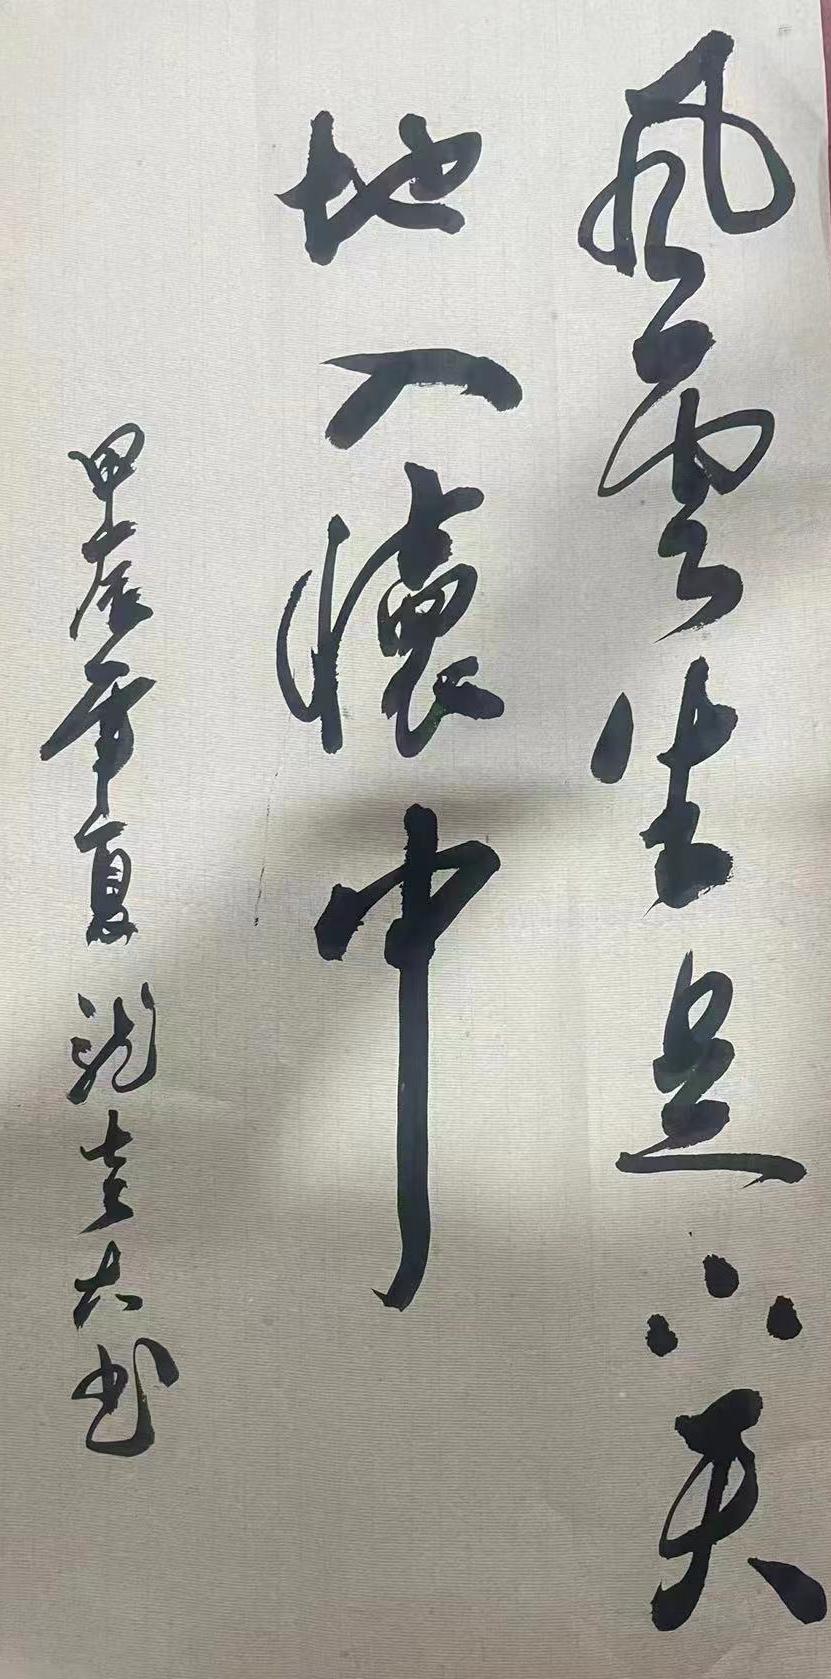 風雲生足下天
地入懷中
甲辰年夏龍吉大书